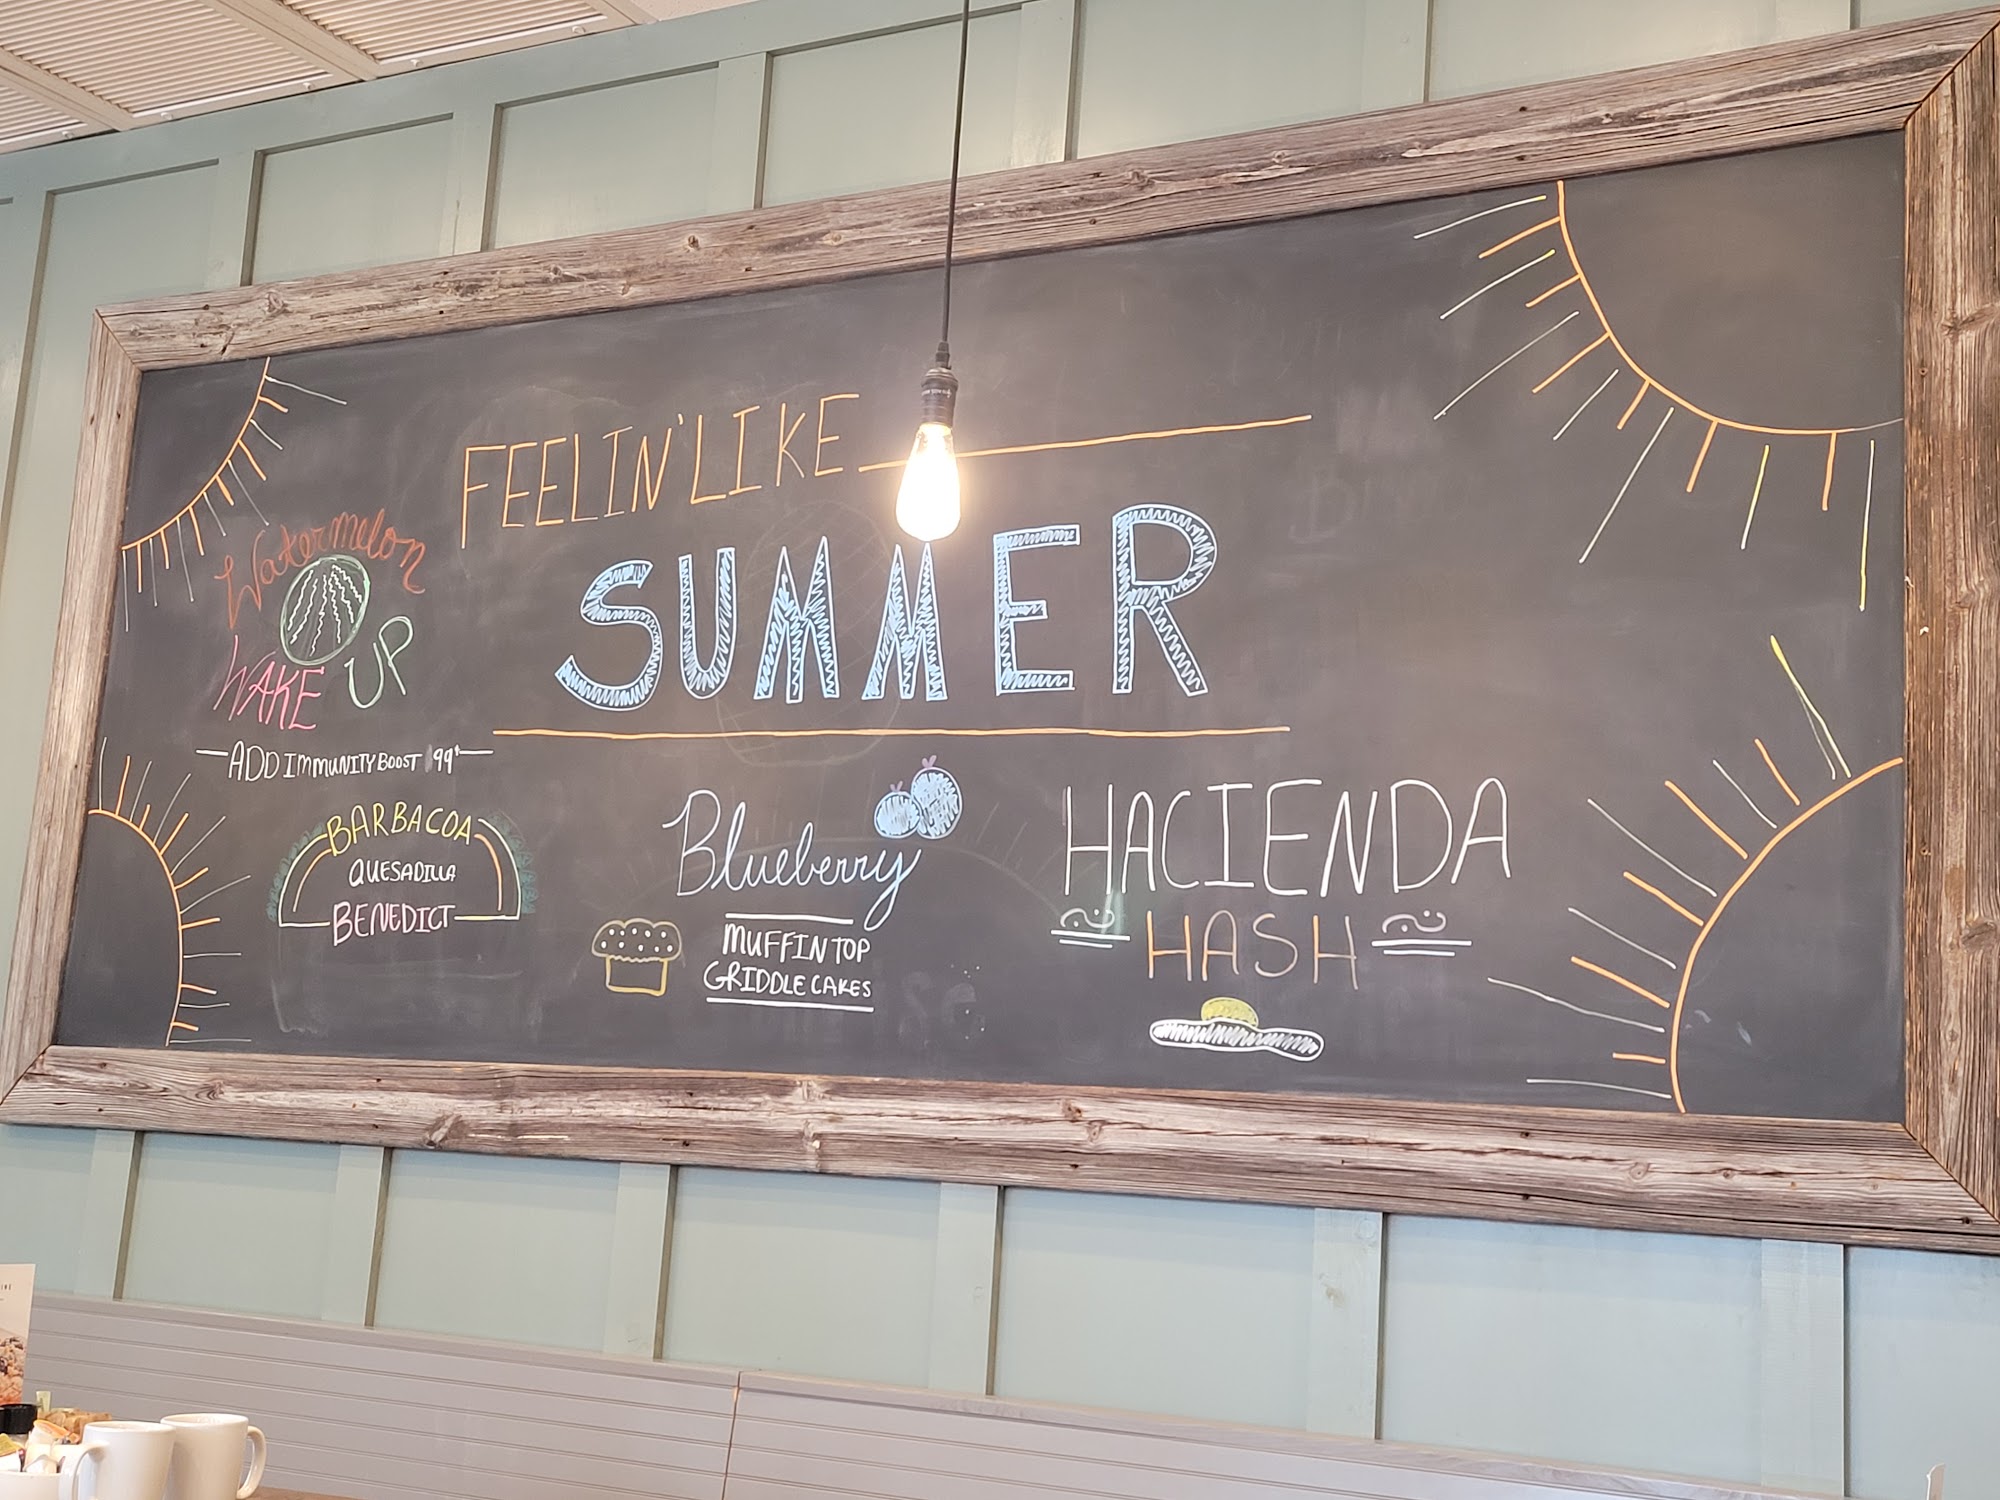 FEELIN' LIKE
SUMMER
Watermelon
WAKE UP
ADD IMMUNITY BOOST 99¢
BARBACOA
QUESADILLA
BENEDICT
Blueberry
MUFFIN TOP
GRIDDLE CAKES
HACIENDA
HASH